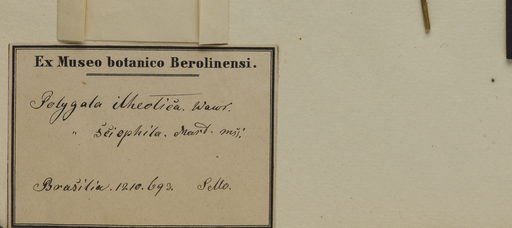 Ex Museo botanico Berolinensi.
Polygala ilheotica. Wawr.
" sciophila. Mart. msc.
Brasilia. 1210. 693. Sello.